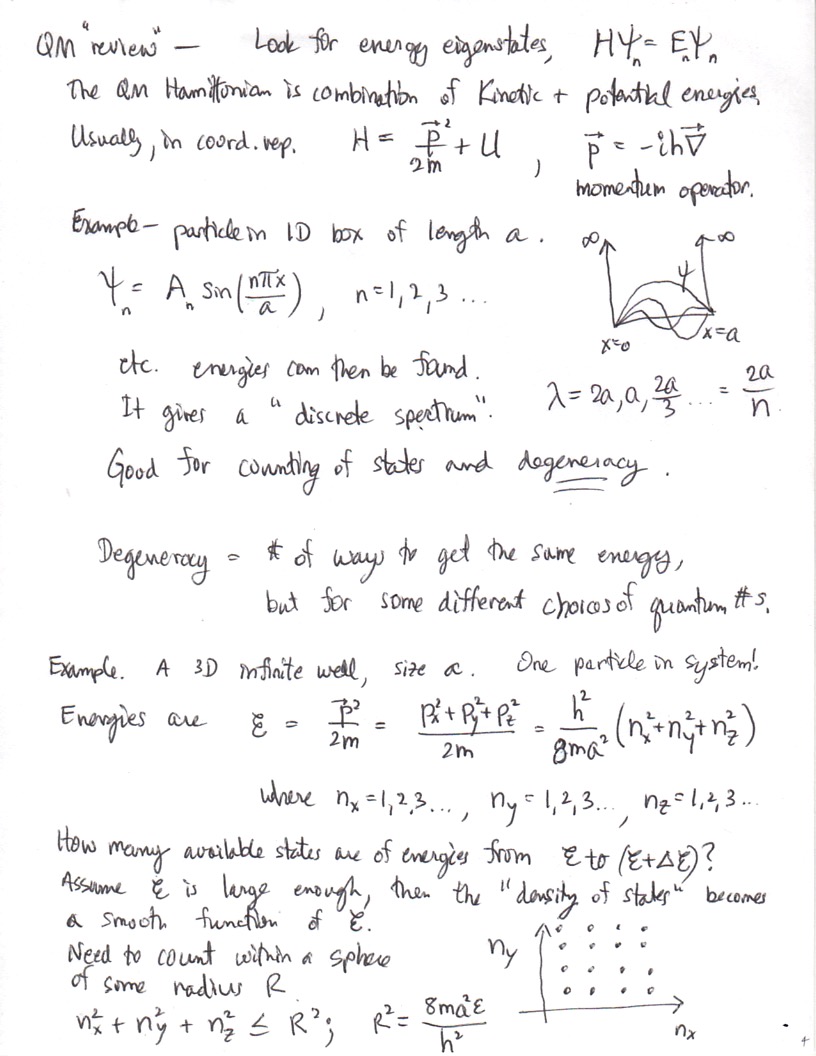 QM "review" — Look for energy eigenstates, Hψₙ = Eₙψₙ
The QM Hamiltonian is combination of Kinetic + potential energies.
Usually, in coord. rep. H = p⃗²/2m + U , p⃗ = -iħ∇⃗
momentum operator.
Example – particle in 1D box of length a.
∞ ∞
ψₙ = Aₙ sin(nπx/a), n=1, 2, 3 ...
ψ
x=0 x=a
etc. energies can then be found.
λ = 2a, a, 2a/3 ... = 2a/n
It gives a "discrete spectrum".
Good for counting of states and degeneracy.
Degeneracy = # of ways to get the same energy,
but for some different choices of quantum #s.
Example. A 3D infinite well, size a. One particle in system!
Energies are ε = p⃗²/2m = (pₓ² + p_y² + p_z²)/2m = h²/8ma² (nₓ² + n_y² + n_z²)
where nₓ = 1, 2, 3 ..., n_y = 1, 2, 3 ..., n_z = 1, 2, 3 ...
How many available states are of energies from ε to (ε+Δε)?
Assume ε is large enough, then the "density of states" becomes
a smooth function of ε.
Need to count within a sphere
of some radius R
n_y
nₓ² + n_y² + n_z² ≤ R²; R² = 8ma²ε/h²
nₓ
4